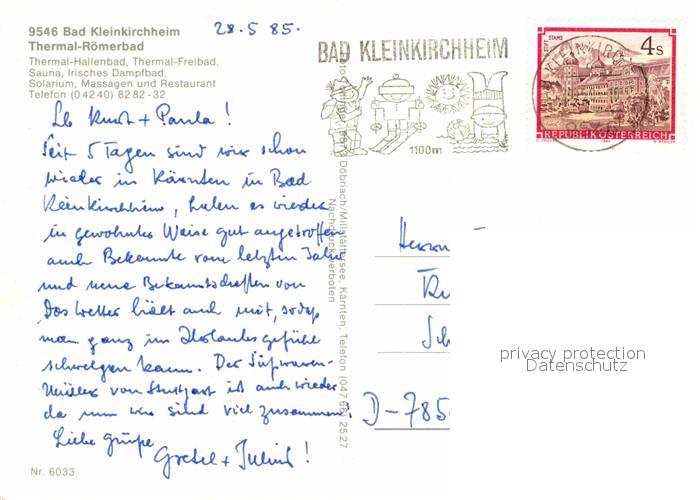 9546 Bad Kleinkirchheim
Thermal-Römerbad
Thermal-Hallenbad, Thermal-Freibad,
Sauna, Irisches Dampfbad,
Solarium, Massagen und Restaurant
Telefon (0 42 40) 82 82 - 32
28.5 85.
BAD KLEINKIRCHHEIM
1100m
STIFT STAMS
4s
REPUBLIK ÖSTERREICH
KLEINKIRCH
Lb Kurt + Paula!
Seit 5 Tagen sind wir schon
wieder in Kärnten in Bad
Kleinkirchheim, haben es wieder
in gewohnter Weise gut angetroffen
auch Bekannte vom letzten Jahr
und neue Bekanntschaften von
Das Wetter hält auch mit, sodaß
man ganz im Urlaubsgefühl
schwelgen kann. Der Süßwaren-
Müller von Stuttgart ist auch wieder
da nun wir sind viel zusammen.
Liebe Grüße
Gretel + Julius!
Döbriach/Millstättersee, Kärnten, Telefon (047 66) 25 27
Nachdruck verboten
Herrn
Sch
D-785
privacy protection
Datenschutz
Nr. 6033